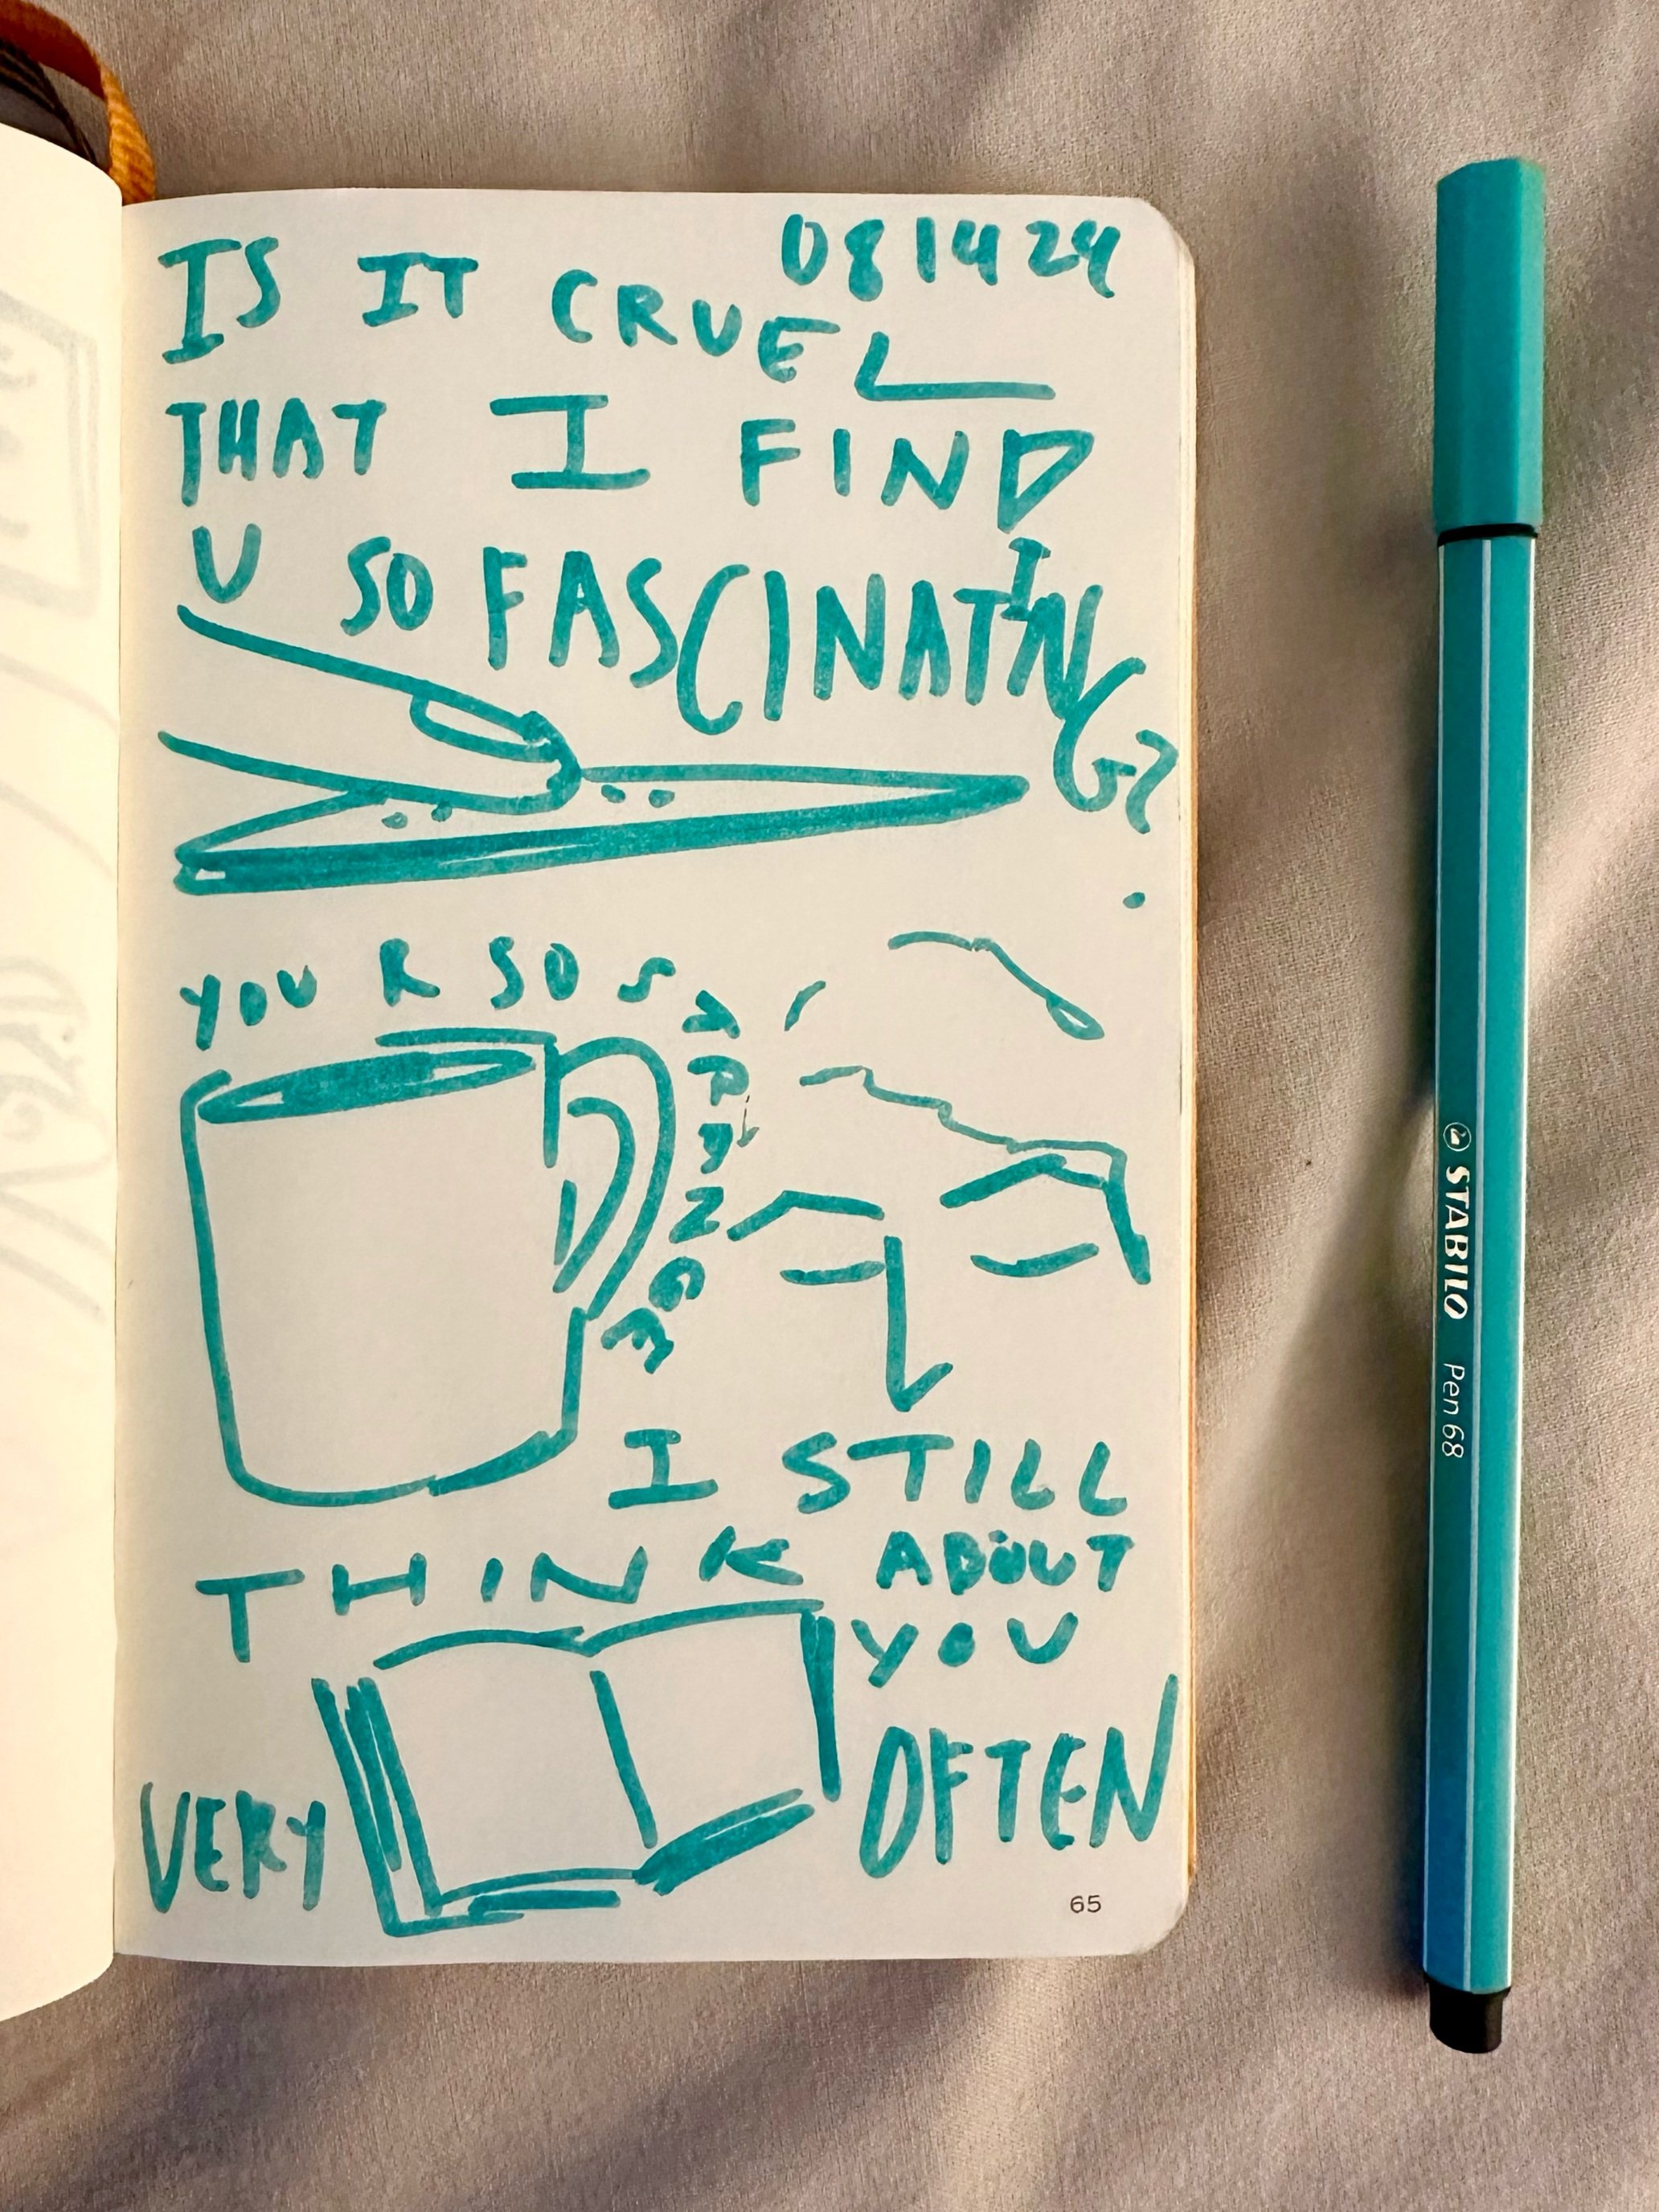 081424
IS IT CRUEL
THAT I FIND
U SO FASCINATING?
YOU R SO STRANGE
I STILL
THINK ABOUT
YOU
VERY OFTEN
65
STABILO Pen 68